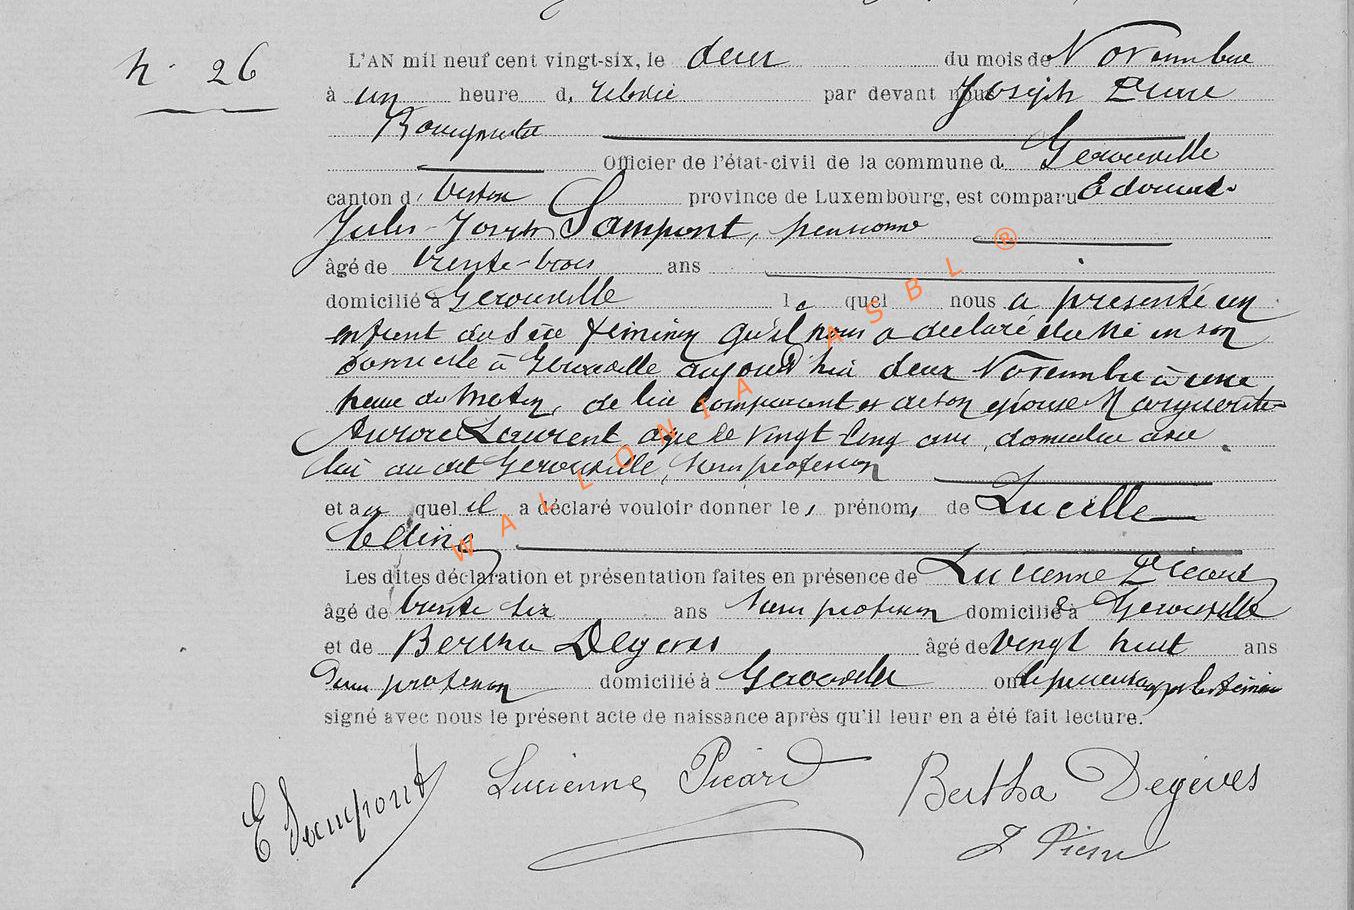 n. 26
L'AN mil neuf cent vingt-six, le deux du mois de Novembre
à un heure d par devant nous Joseph Pierre
Bourgmestre
Officier de l'état-civil de la commune d. Gerouville
canton d. Virton province de Luxembourg, est comparu Edouard
Jules-Joseph Sampont, pensionné
âgé de trente-trois ans
domicilié à Gerouville le quel nous a présenté un
enfant du sexe féminin qu'il nous a déclaré être né en son
domicile à Gerouville aujourd'hui deux Novembre à une
heure du matin, de lui comparant et de son épouse Marguerite
Aurore Laurent agée de vingt cinq ans, domiciliée avec
lui au dit Gerouville, sans profession
et au quel il a déclaré vouloir donner les prénoms de Lucille
Celline
Les dites déclaration et présentation faites en présence de Lucienne Picard
âgé de trente six ans sans profession domicilié à Gerouville
et de Bertha Degives âgé de vingt huit ans
sans profession domicilié à Gerouville ont
signé avec nous le présent acte de naissance après qu'il leur en a été fait lecture.
E Sampont Lucienne Picard Bertha Degives
J Pierre
WALLONIA ASBL ®